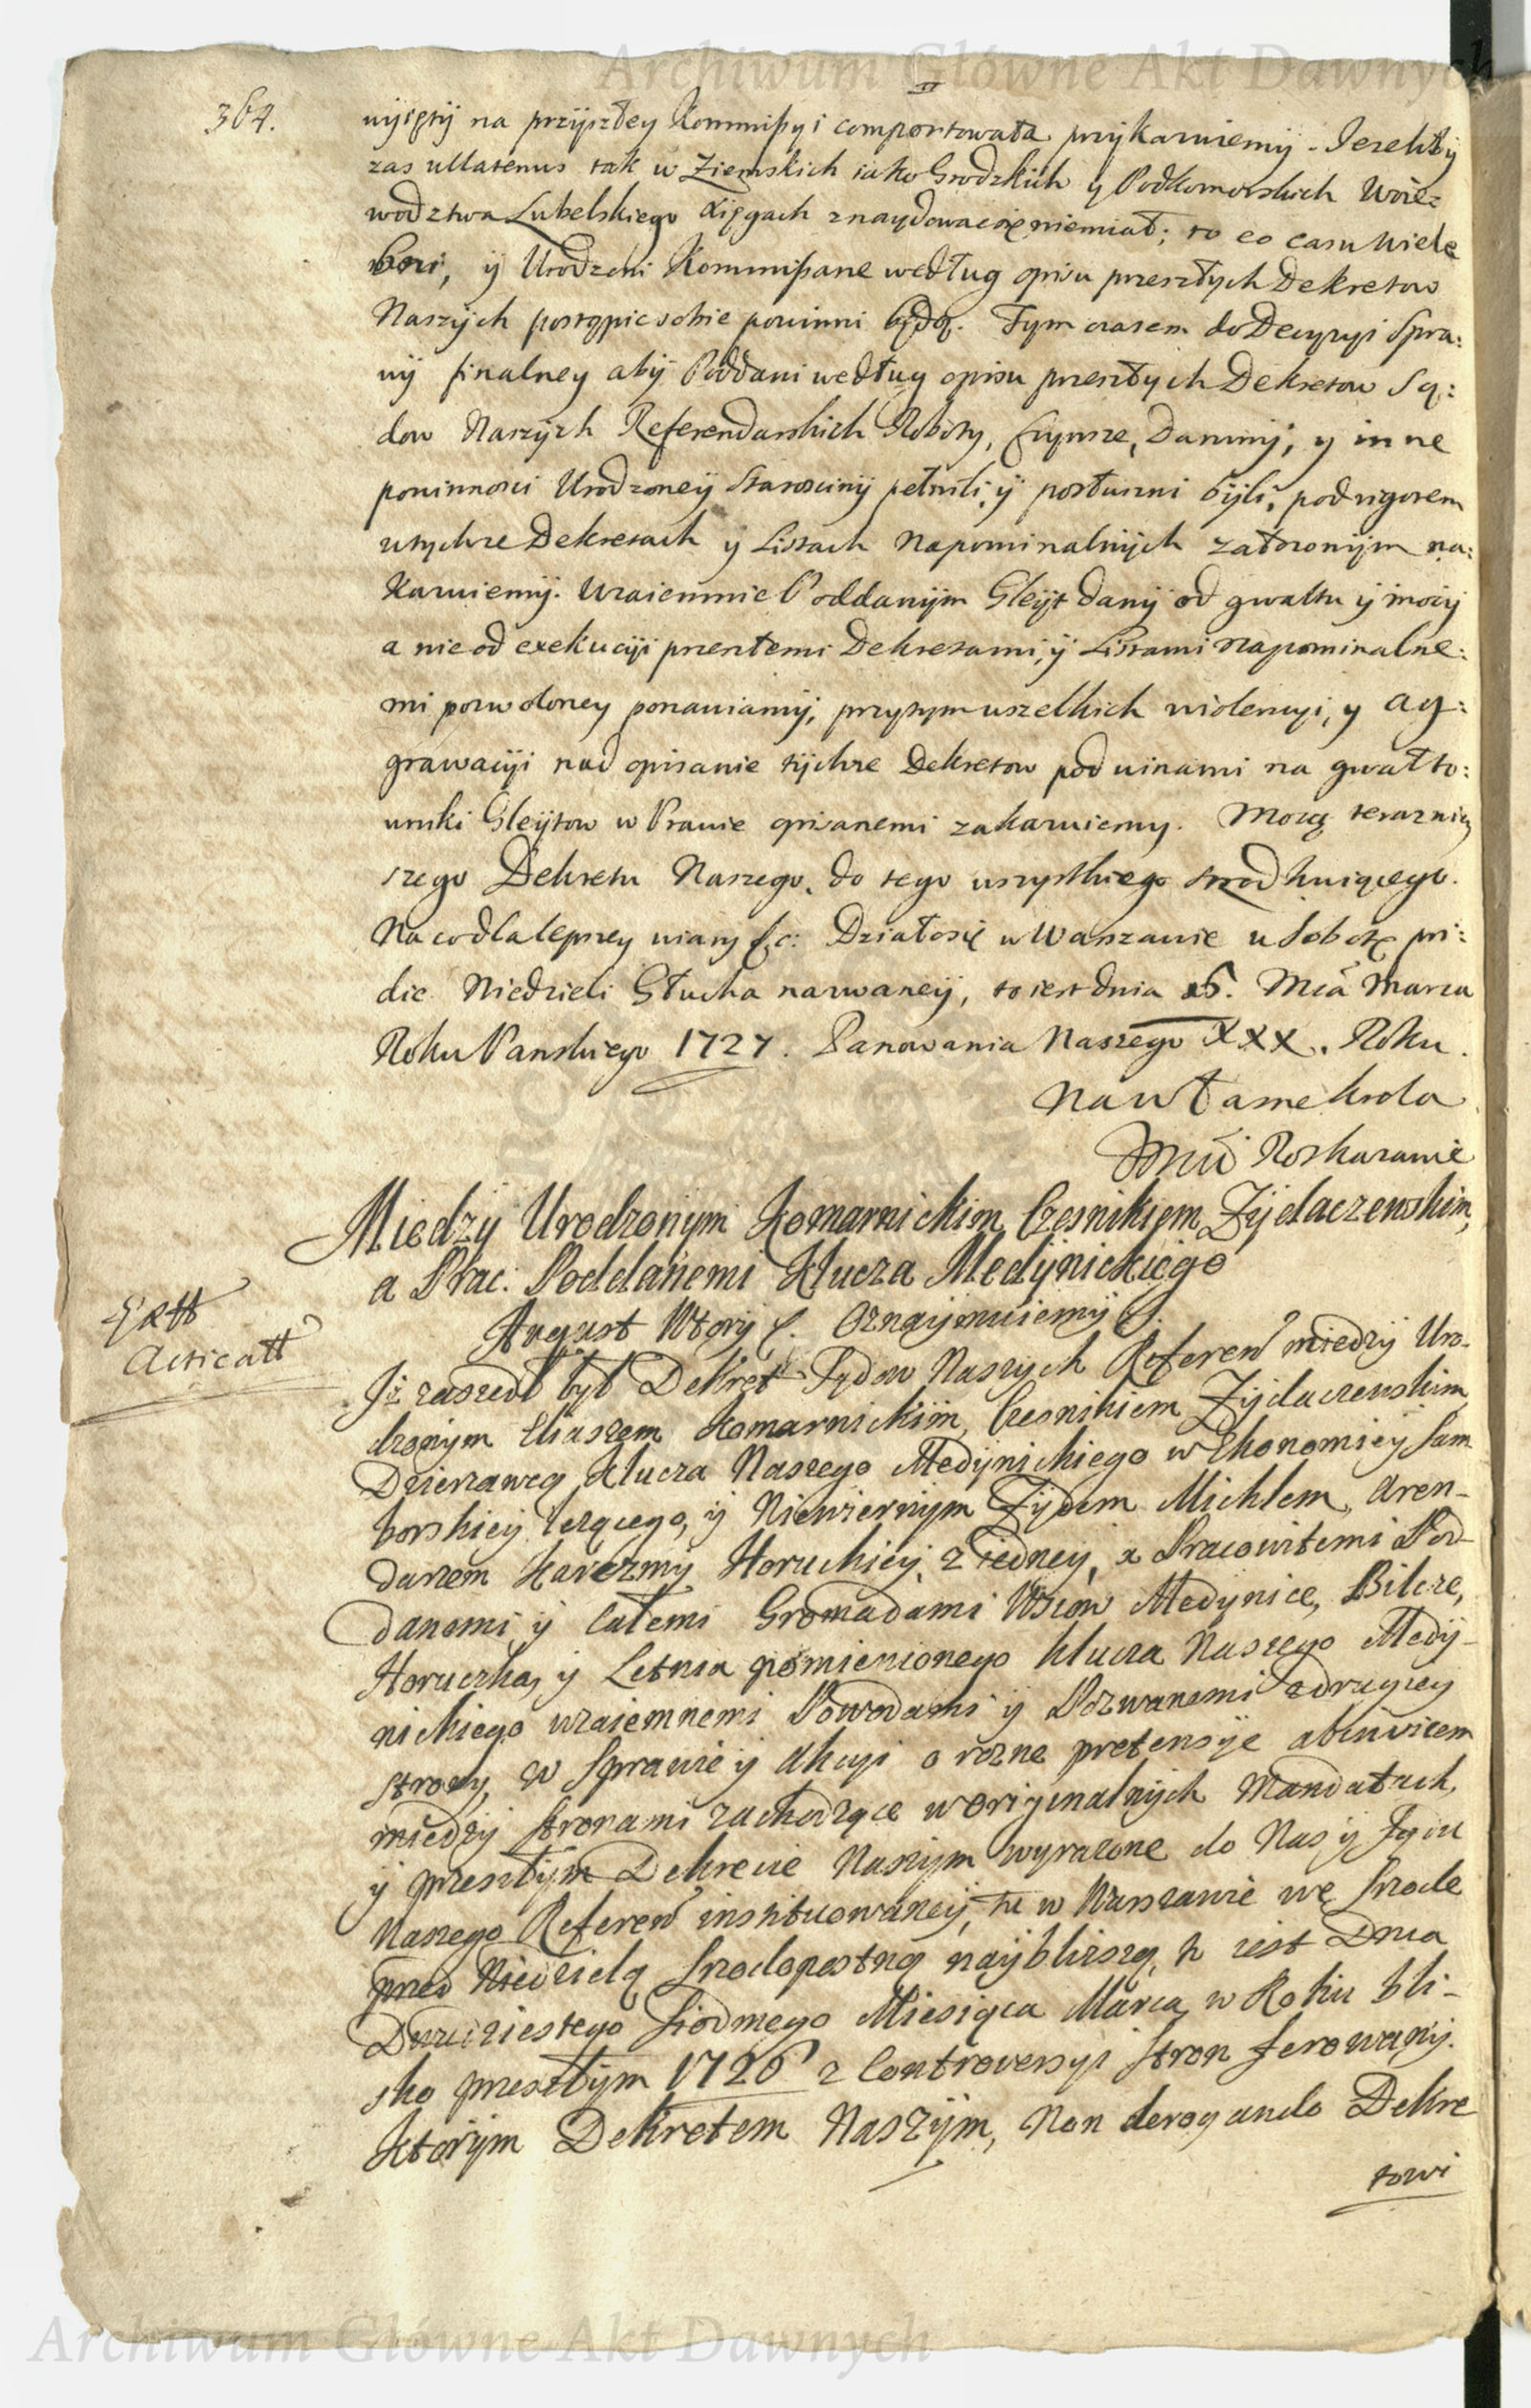 Archiwum Główne Akt Dawnych
364.
wijęţij na przyszłey Kommissyi comportowała przykazuiemy. Jezeliby
zas ullatenus tak w Ziemskich iako Grodzkich y Podkomorskich Woie=
wodztwa Lubelskiego Xięgach znaydowac się niemiał; to eo casu Wiele
bni, ÿ Urodzeni Kommissarze według opisu przeszłych Dekretow
Naszych postąpic sobie powinni będą. Tym czasem do Decyzyi Spra:
wy finalney aby Poddani według opisu przeszłych Dekretow Są:
dow Naszych Referendarskich Roboty, Czynsze, Daniny, y inne
powinnosci Urodzoney Starosciny pełnili, ÿ posłuszni byli, pod rigorem
w tychze Dekretach y Listach Napominalnych załozonym na:
kazuiemy. Wzaiemnie Poddanym Gleyt dany od gwałtu y mocy
a nie od exekucyi przeszłemi Dekretami, ÿ Listami Napominalne:
mi pozwoloney ponawiamy, przytym wszelkich wiolencyi, y ag:
grawacyi nad opisanie tychze Dekretow pod winami na gwałto:
wniki Gleytow w Prawie opisanemi zakazuiemy. Mocą teraznię
szego Dekretu Naszego, do tego wszystkiego srzodkuiącego.
Na co dla lepszey wiary &c: Działo się w Warszawie w Sobotę pri:
die Niedzieli Głucha nazwaney, to iest dnia Mca Marca
Roku Panskiego 1727. Panowania Naszego XXX. Roku.
Na własne Krola
Jmci Roskazanie
Między Urodzonym Komarnickim Czesnikiem Zydaczewskim,
a Prac: Poddanemi Klucza Medynickiego
Extt
Acticatt
August Wtory &. Oznaymuiemy &.
Iz zaszedł był Dekret Sądow Naszych Referen między Uro-
dzonym Eliaszem Komarnickim, Czesnikiem Zydaczewskim,
Dzierzawcą Klucza Naszego Medynickiego w Ekonomiey Sam
borskiey lezącego, y Niewiernym Zydem Michlem, Aren-
darzem Karczmy Horuckiey, z iedney, a Pracowitemi Pod-
danemi y Całemi Gromadami Wsiow Medynice, Bilcze,
Horucka, y Letnia pomienionego klucza Naszego Medy-
nickiego wzaiemnemi Powodami y Pozwanemi z drugiey
strony, w Sprawie y Akcyi o rozne pretensye abinvicem
między stronami zachodzące w originalnych Mandatach,
y przeszłym Dekrecie Naszym wyrazone do Nas y Sądu
Naszego Referen instituowaney, tu w Warszawie we Srzode
przed Niedzielą Srzodopostną naybliszszą, to iest Dnia
Dwudziestego Siodmego Miesiąca Marca w Roku bli-
sko przeszłym 1726 z Controversyi stron ferowany.
Ktorym Dekretem Naszym, Non derogando Dekre
towi
Archiwum Główne Akt Dawnych